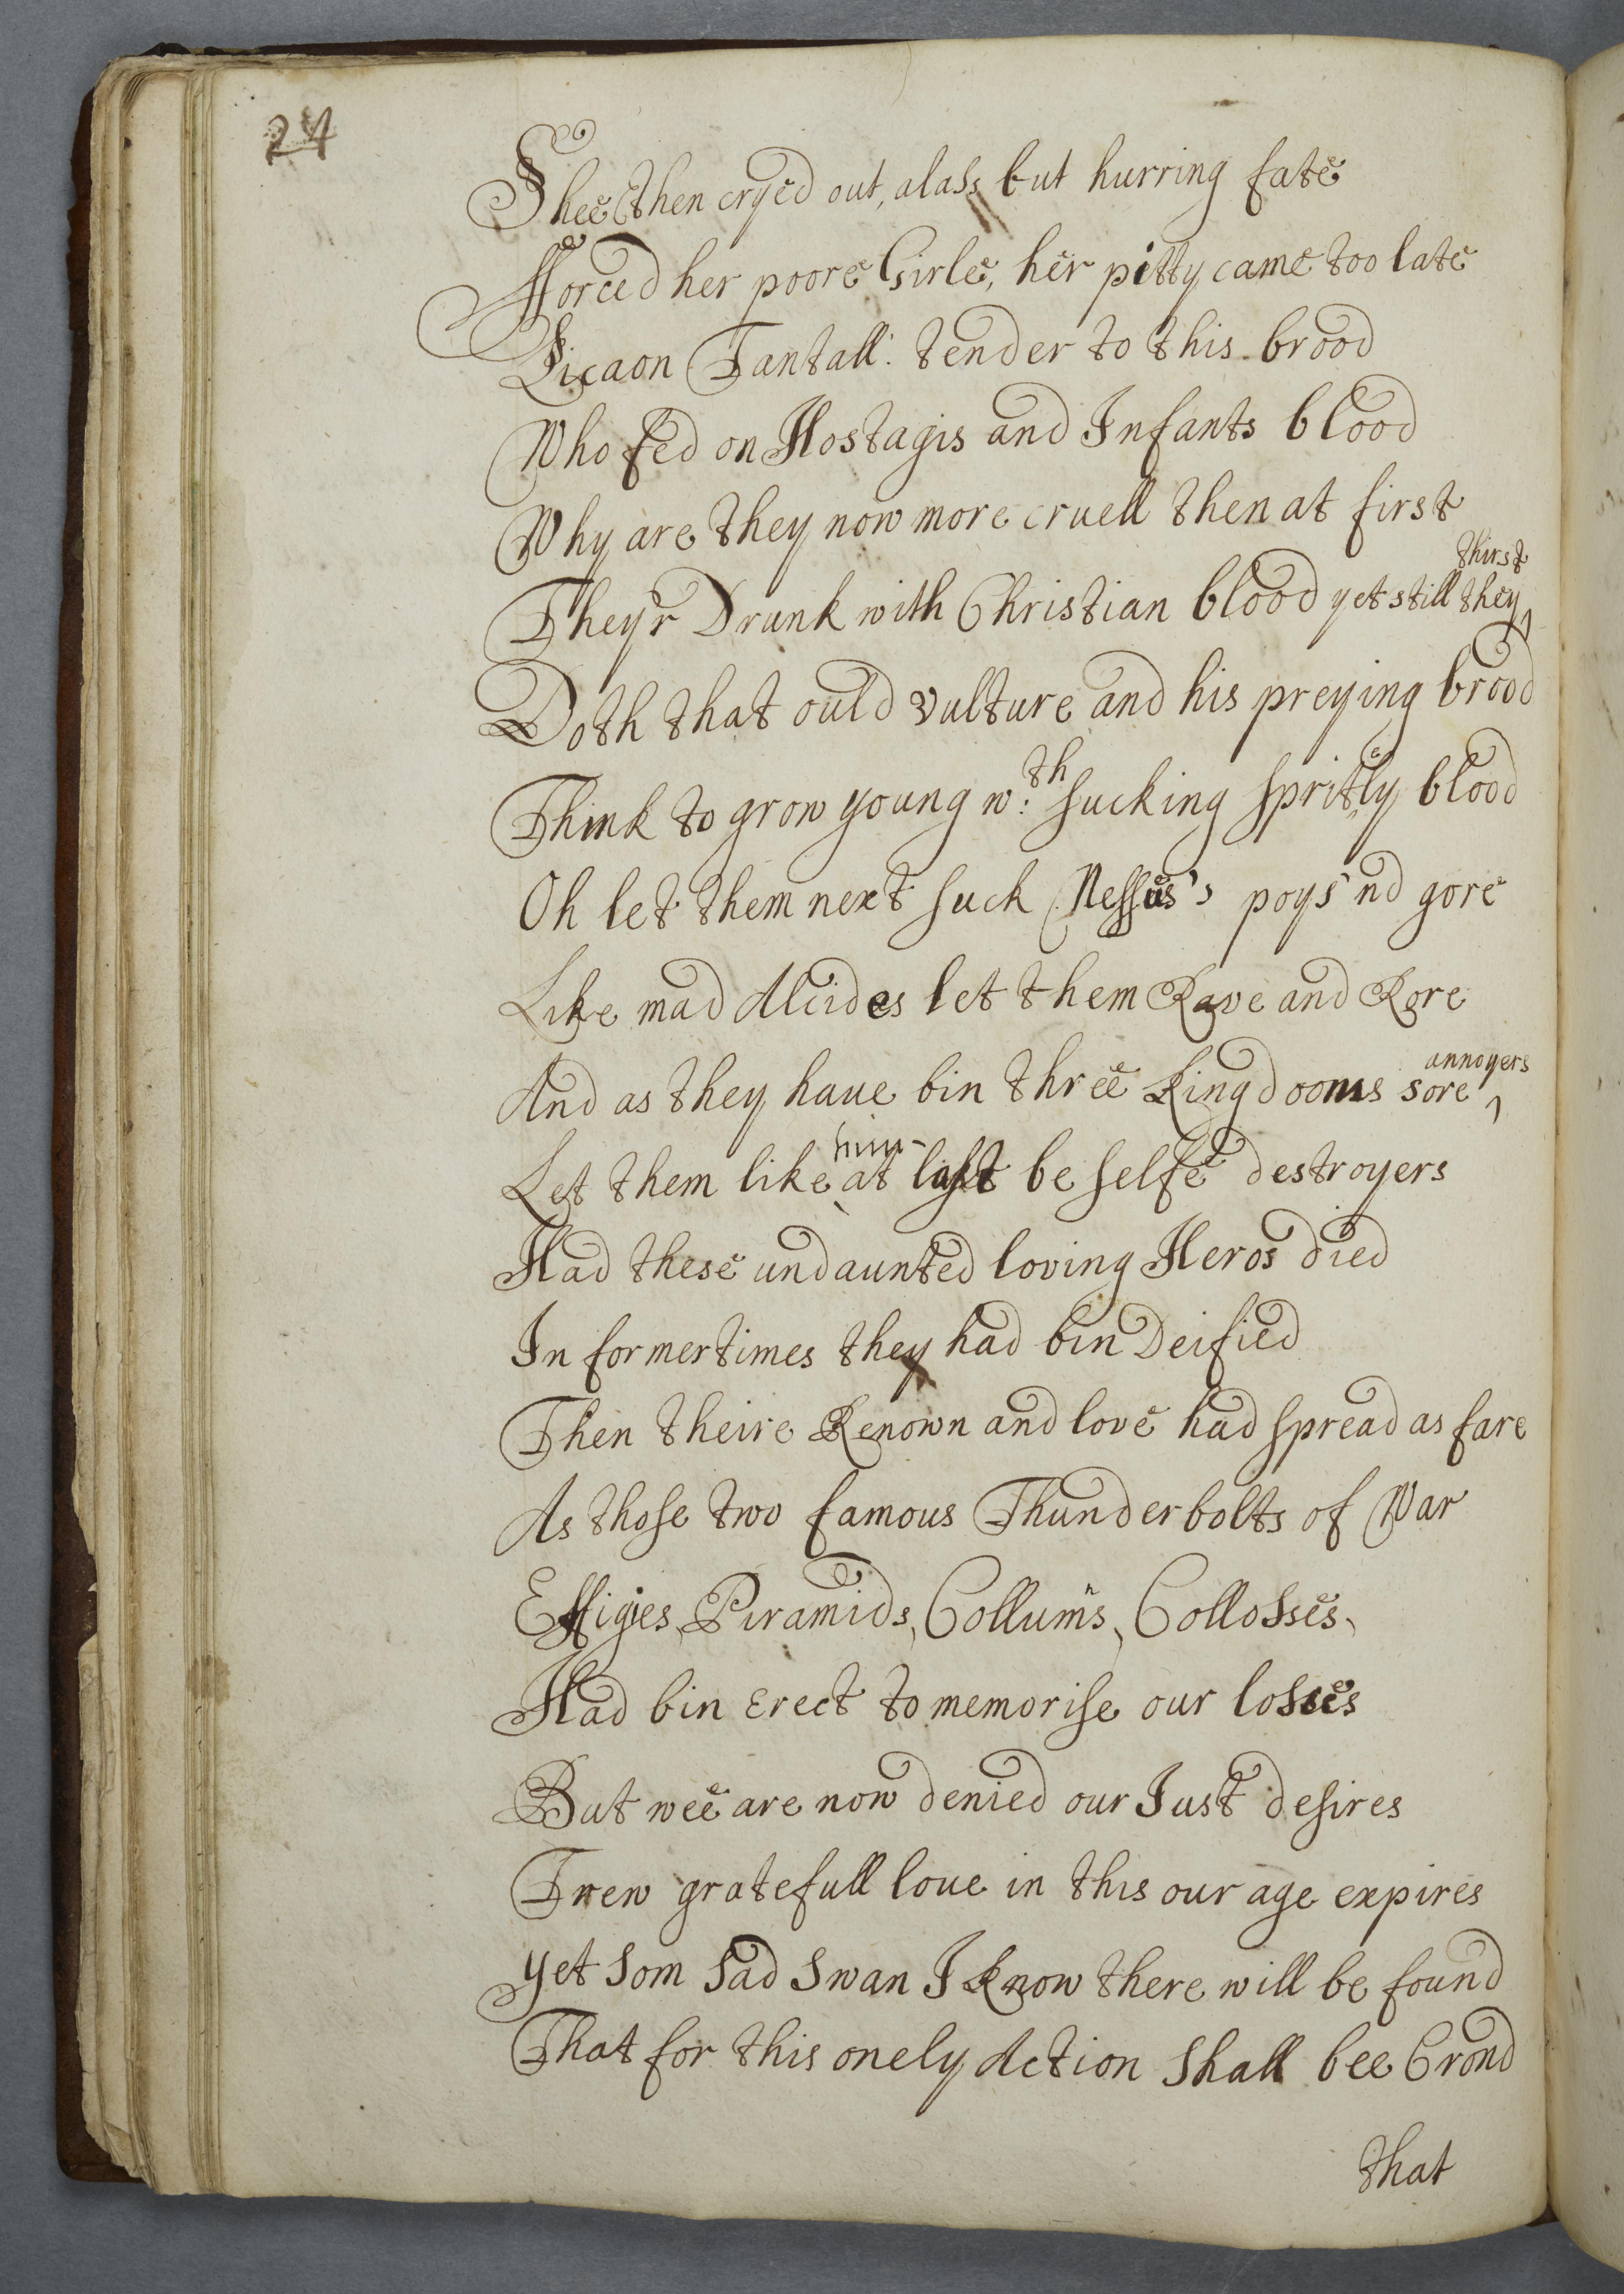 24
Shee then cryed out, alass but hurring fate
fforced her poore Girle, her pitty came too late
Licaon Tantall: tender to this brood
Who fed on Hostagis and Infants blood
Why are they now more cruell then at first
They'r Drunk with Christian blood yet still they thirst
Doth that ould vulture and his preying brood
Think to grow young w:th sucking spritely blood
Oh let them next suck Nessus's poys'nd gore
Like mad Alcides let them Rave and Rore
And as they haue bin three Kingdooms sore annoyers
Let them like him at last be selfe destroyers
Had these undaunted loving Heros died
In former times they had bin Deified
Then theire Renown and love had spread as fare
As those two famous Thunderbolts of War
Effigies, Piramids, Collumns, Collosses,
Had bin Erect to memorise our losses
But wee are now denied our Just desires
Trew gratefull loue in this our age expires
yet som sad Swan I know there will be found
That for this onely Action Shall bee Crond
that